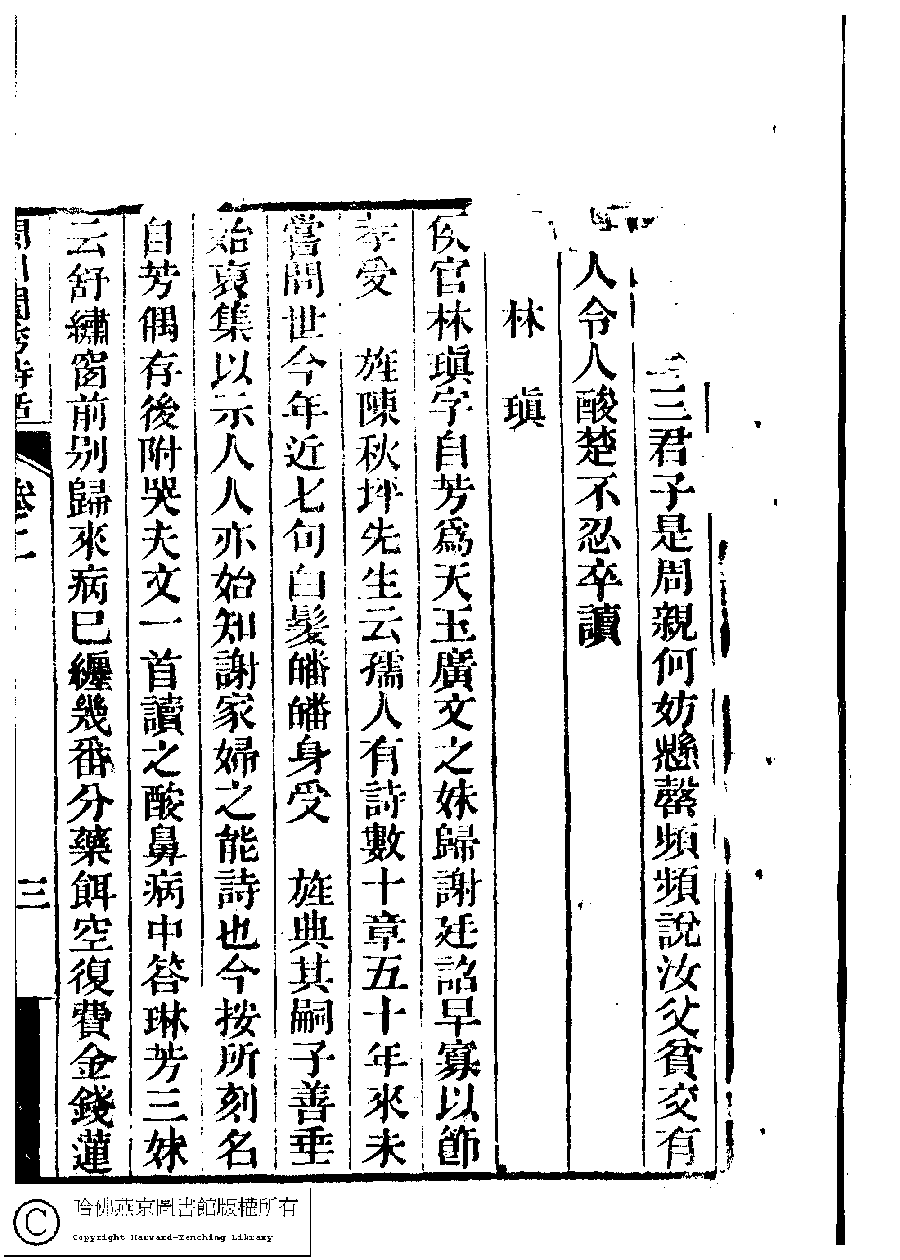 三君子是周親何妨懸罄頻頻說汝父貧交有
人令人酸楚不忍卒讀
林瑱
侯官林瑱字自芳爲天玉廣文之妹歸謝廷詔早寡以節
孝受 旌陳秋坪先生云孺人有詩數十章五十年來未
嘗問世今年近七旬白髮皤皤身受 旌典其嗣子善垂
始裒集以示人人亦始知謝家婦之能詩也今按所刻名
自芳偶存後附哭夫文一首讀之酸鼻病中答琳芳三妹
云舒繡窗前别歸來病已纏幾番分藥餌空復費金錢蓮
卷二
三
哈佛燕京圖書館版權所有
Copyright Harvard-Yenching Library